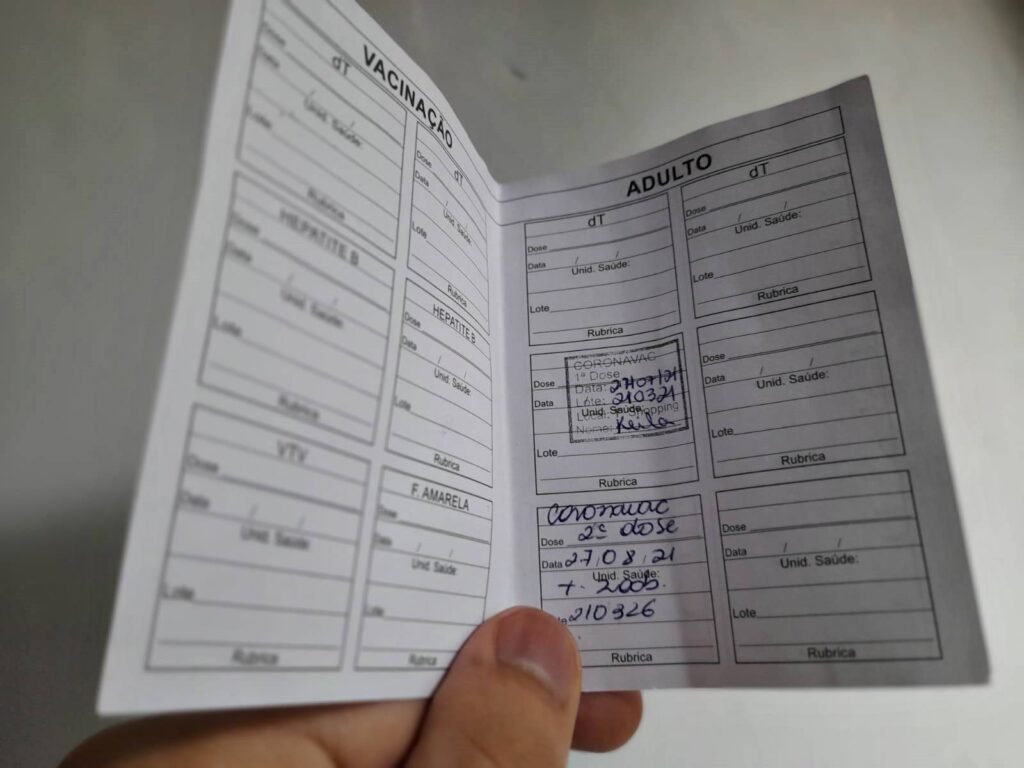 VACINAÇÃO
dT
Dose
Data / /
Unid. Saúde:
Lote
Rubrica
dT
Dose
Data / /
Unid. Saúde:
Lote
Rubrica
HEPATITE B
Dose
Data / /
Unid. Saúde:
Lote
Rubrica
HEPATITE B
Dose
Data / /
Unid. Saúde:
Lote
Rubrica
VTV
Dose
Data / /
Unid. Saúde:
Lote
Rubrica
F. AMARELA
Dose
Data / /
Unid. Saúde:
Lote
Rubrica
ADULTO
dT
Dose
Data / /
Unid. Saúde:
Lote
Rubrica
dT
Dose
Data / /
Unid. Saúde:
Lote
Rubrica
CORONAVAC
Dose 1ª Dose
Data Data:
Lote: 210321
Unid. Saúde:
Local: Shopping
Nome: Keila
Lote
Rubrica
Dose
Data / /
Unid. Saúde:
Lote
Rubrica
Coronavac
Dose 2ª dose
Data 27,08,21
Unid. Saúde:
210326
Rubrica
Dose
Data / /
Unid. Saúde:
Lote
Rubrica